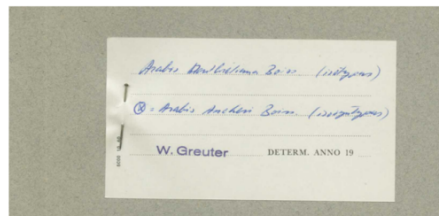 Arabis Montbretiana Boiss. (isotypus)
Ⓧ = Arabis Aucheri Boiss. (isosyntypus)
W. Greuter DETERM. ANNO 19